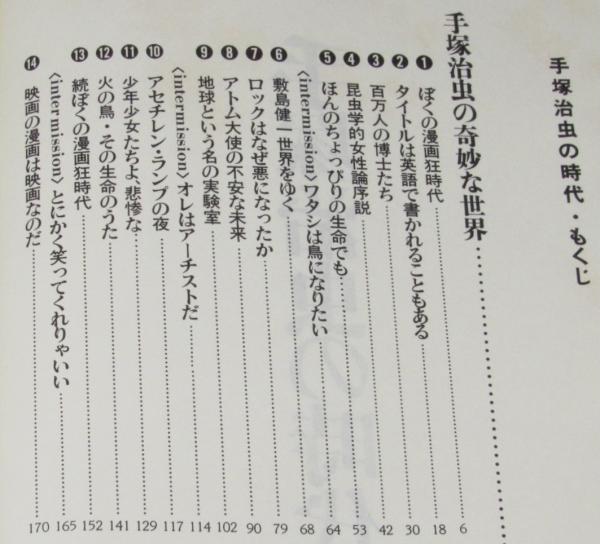 手塚治虫の時代・もくじ
手塚治虫の奇妙な世界
❶ ぼくの漫画狂時代 6
❷ タイトルは英語で書かれることもある 18
❸ 百万人の博士たち 30
❹ 昆虫学的女性論序説 42
❺ ほんのちょっぴりの生命でも 53
〈intermission〉ワタシは鳥になりたい 64
❻ 敷島健一世界をゆく 68
❼ ロックはなぜ悪になったか 79
❽ アトム大使の不安な未来 90
❾ 地球という名の実験室 102
〈intermission〉オレはアーチストだ 114
❿ アセチレン・ランプの夜 117
⓫ 少年少女たちよ、悲惨な 129
⓬ 火の鳥・その生命のうた 141
⓭ 続ぼくの漫画狂時代 152
〈intermission〉とにかく笑ってくれりゃいい 165
⓮ 映画の漫画は映画なのだ 170